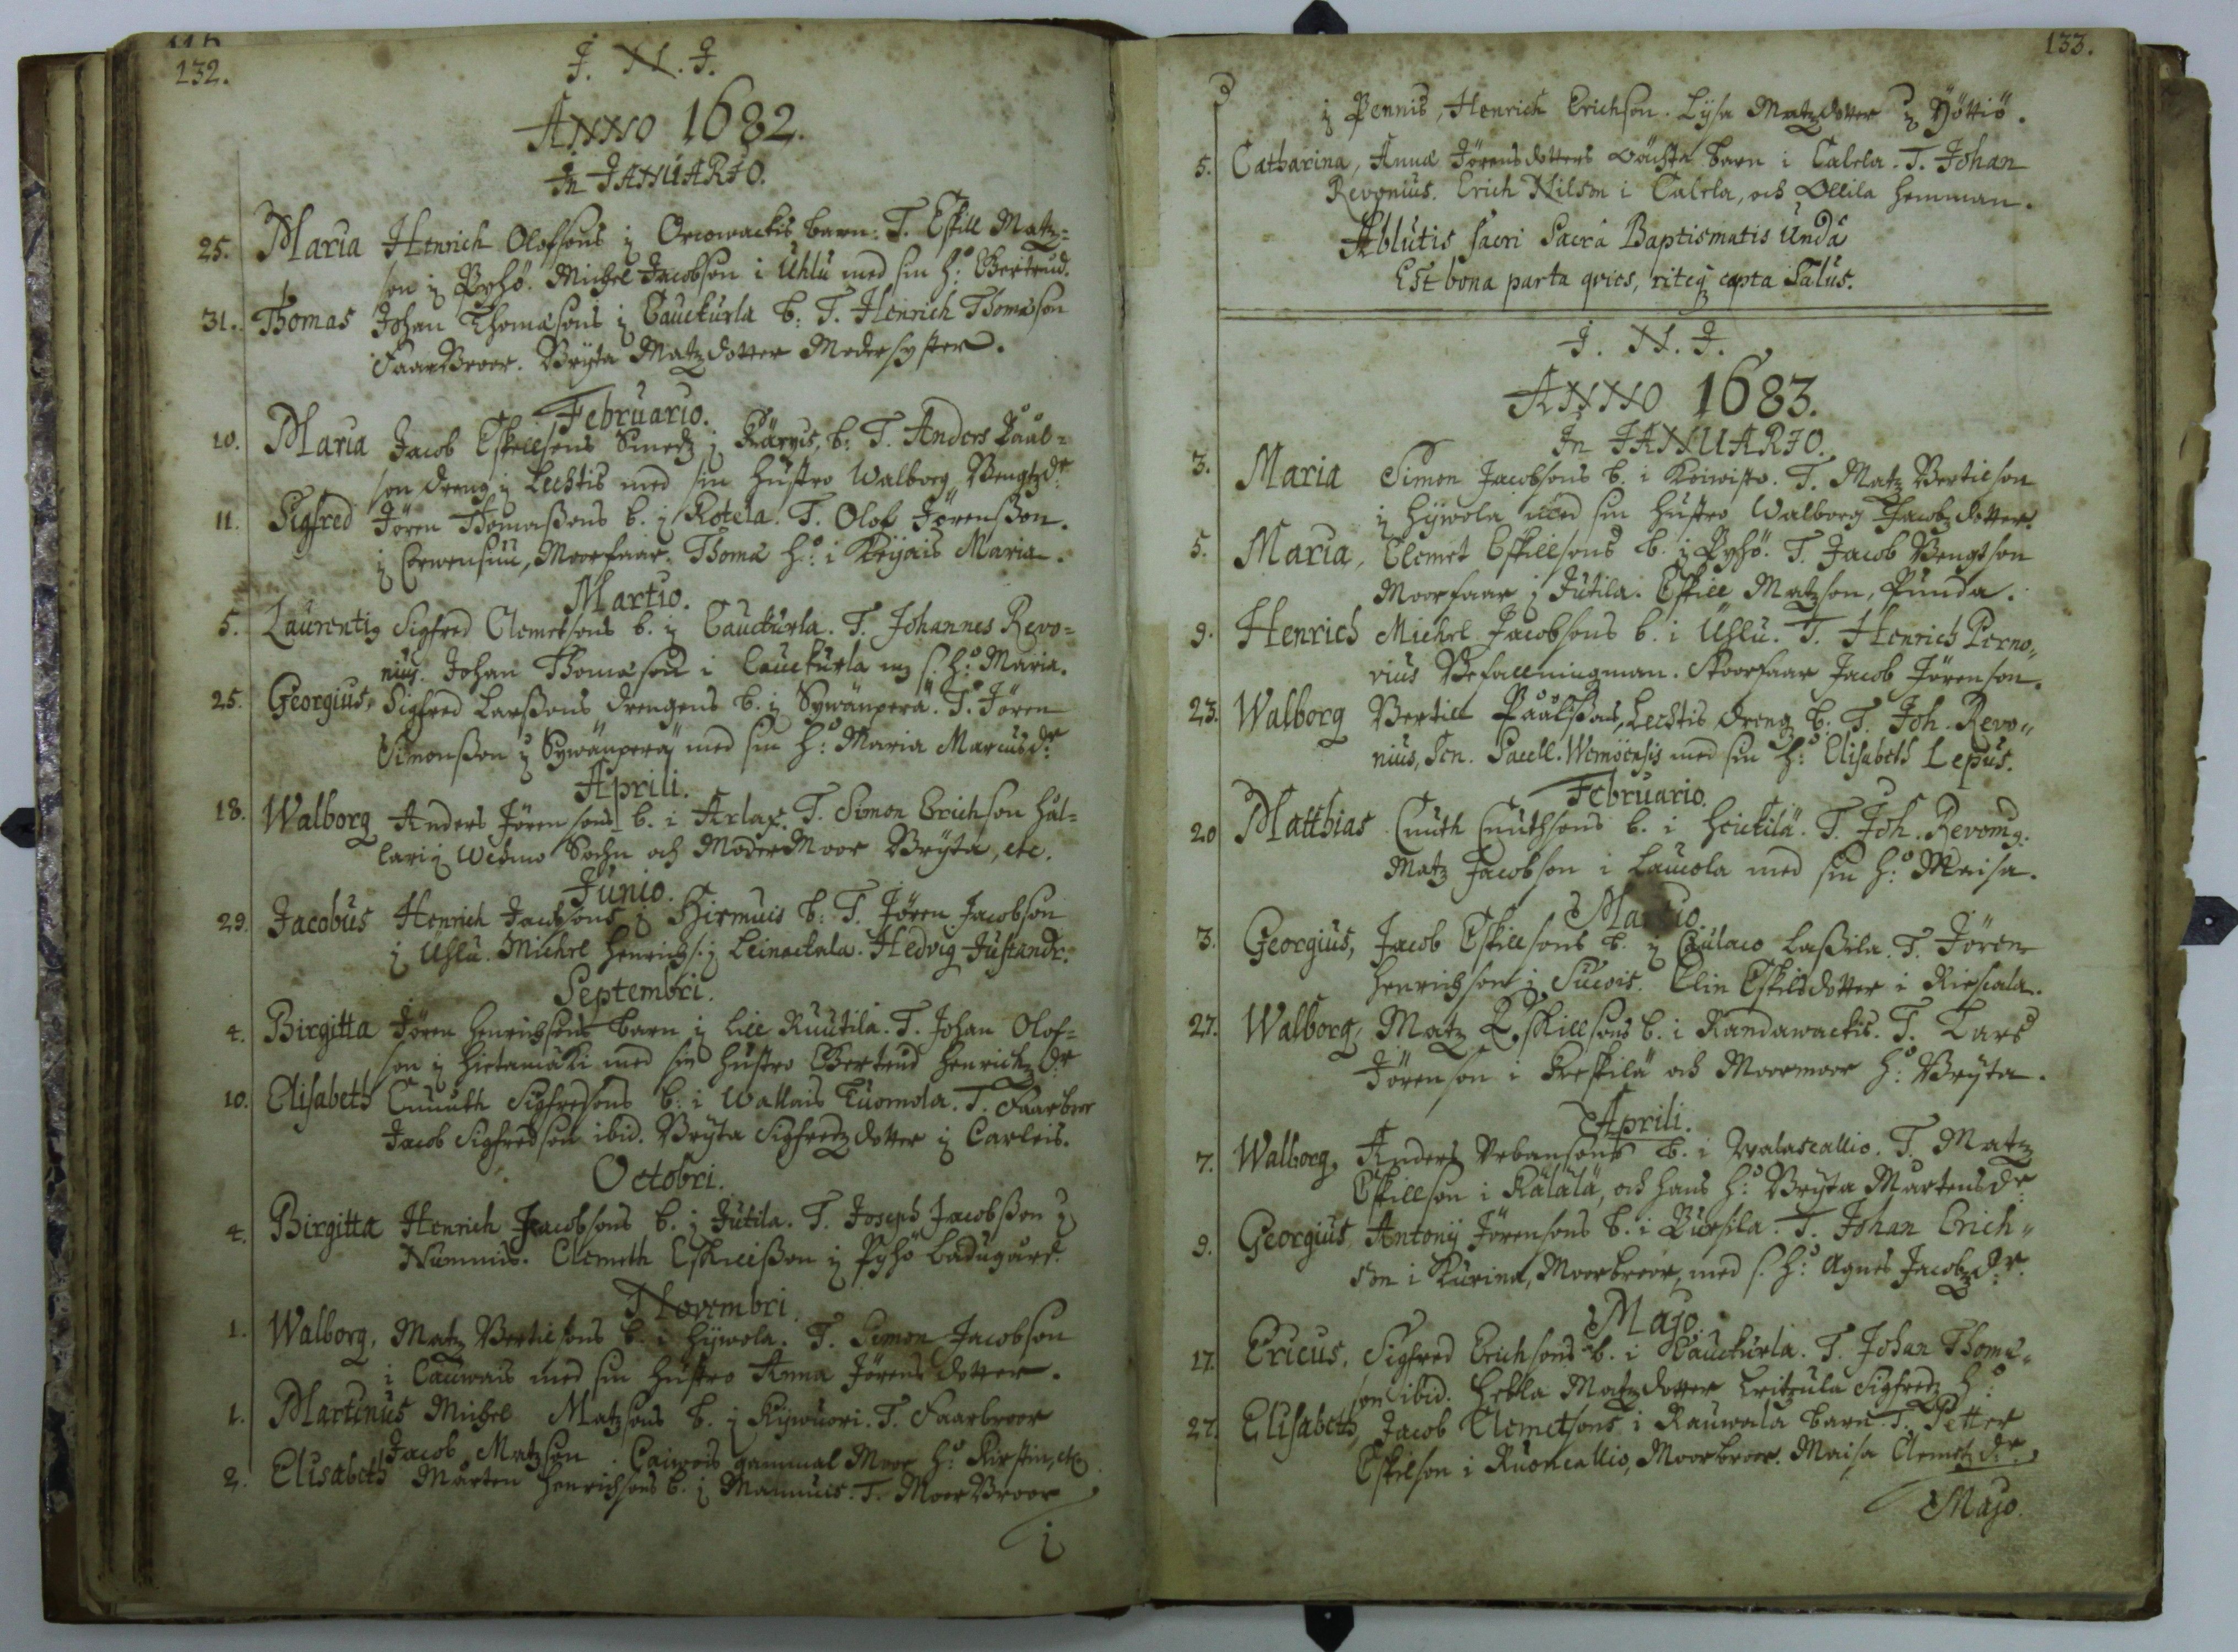 132.
J. N. J.
ANNO 1682.
In JANUARIO.
25. Maria Henrich Olofsons i Orowackis barn. T. Eskill Matz=
son i Pyhö. Michel Jacobson i Uhlu med sin h:o Bertrud.
31. Thomas Johan Thomasons i Cauckurla b: T. Henrich Thomason
FaarBroor. Bryta Matzdotter Modersyster.
Februario.
10. Maria Jacob Eskillsons Smedz i Kärys, b: T. Anders Påål=
son dreng i Lechtis med sin hustro Walborg Bengtzdr
11. Sigfred Jören Thomaßons b. i Rotela. T. Olof Jörenßon.
i Corwensuu, Moorfaar. Thoma h:o i Keijais Maria.
Martio.
5. Laurentig Sigfred Clemetsons b. i Cauckurla. T. Johannes Revo=
nius. Johan Thomason i Cauckurla m; s. h:o Maria.
25. Georgius, Sigfred Larßons drengens b. i Sywänperä. T. Jören
Simonßon i Sywänperä med sin h:o Maria Marcusdr
Aprili.
18. Walborg Anders Jörensons b. i Arlax. T. Simon Erichson Hal=
lari i Wehmo Sochn och ModerMoor Bryta, etc.
Junio.
29. Jacobus Henrich Jacobsons i Hirmuis b: T. Jören Jacobson
i Uhlu. Michel Henrichs. i Leinackala. Hedvig Justandr.
Septembri.
4. Birgitta Jören Henrichsons barn i Lill Ruutila. T. Johan Olof=
son i Hietamäki med sin hustro Bertrud Henrichzdr
10. Elisabeth Cnuuth Sigfredsons b. i Wallais Tuomola. T. Faarbror
Jacob Sigfredson ibid. Bryta Sigfredzdotter i Carleis.
Octobri.
4. Birgitta Henrich Jacobsons b. i Jutila. T. Joseph Jacobßon i
Nummis. Clemeth Eskillßon i Pyhö Ladugård.
Novembri.
1. Walborg, Matz Bertilsons b. i Hywola. T. Simon Jacobson
i Cauwais med sin hustro Anna Jörensdotter.
1. Martinus Michel Matzsons b. i Kywuori. T. Faarbroor
Jacob Matzson. Caiwois gammal Moor h:o Kirstin, etc
2. Elisabeth Mårten Henrichsons b. i Mannuis. T. MoorBroor
i
133.
i Pennis, Henrich Erichson. Lysa Matzdotter i Höttiö.
5. Catharina, Anna Jörensdotters oächta barn i Calela. T. Johan
Revonius. Erich Nilson i Calela, och Ollila hemman.
Ablutis sacri Sacra Baptismatis Unda
Est bona parta qvies, riteq capta Salus.
J. N. J.
ANNO 1683.
In JANUARIO.
3. Maria Simon Jacobsons b. i Koiwisto. T. Matz Bertilson
i Hywola med sin hustro Walborg Jacobzdotter.
5. Maria, Clemet Eskillsons b. i Pyhö. T. Jacob Bengtson
Moorfaar i Jutila. Eskill Matzson, Punda.
9. Henrich Michel Jacobsons b. i Uhlu. T. Henrich Perno„
vius Befallningman. Stoorfaar Jacob Jörenson.
23. Walborg Bertill Påålßons, Lechtis dreng b: T. Joh. Revo„
nius, Sen. Sacell. Wemöensis med sin h:o Elisabeth Lepus.
Februario.
20 Matthias Cnuth Cnuthsons b. i Heickilä. T. Joh. Revonig.
Matz Jacobson i Laucola med sin h:o Maisa.
Martio.
3. Georgius, Jacob Eskillsons b. i Caulaco Laßila. T. Jören
Henrichson i Sucois. Elin Eskilsdotter i Riescala.
27. Walborg, Matz Eskillsons b. i Randawackis. T. Lars
Jörenson i Keskilä och Moormoor h:o Bryta.
Aprili.
7. Walborg, Anders Urbansons b. i Walascallio. T. Matz
Eskillson i Kälälä, och hans h:o Bryta Martensdr
9. Georgius Antonij Jörensons b. i Pursila. T. Johan Erich„
son i Kurina, Moorbroor, med s. h:o Agnes Jacobzdr.
Majo.
17. Ericus, Sigfred Erichsons b. i Cauckurla. T. Johan Thoma„
son ibid. Hebla Matzdotter Leitzula Sigfredz h:o
27. Elisabeth, Jacob Clemetsons i Rauwala barn. T. Petter
Eskelson i Ruoncallio, Moorbroor. Maisa Clemetzdr.
Majo.